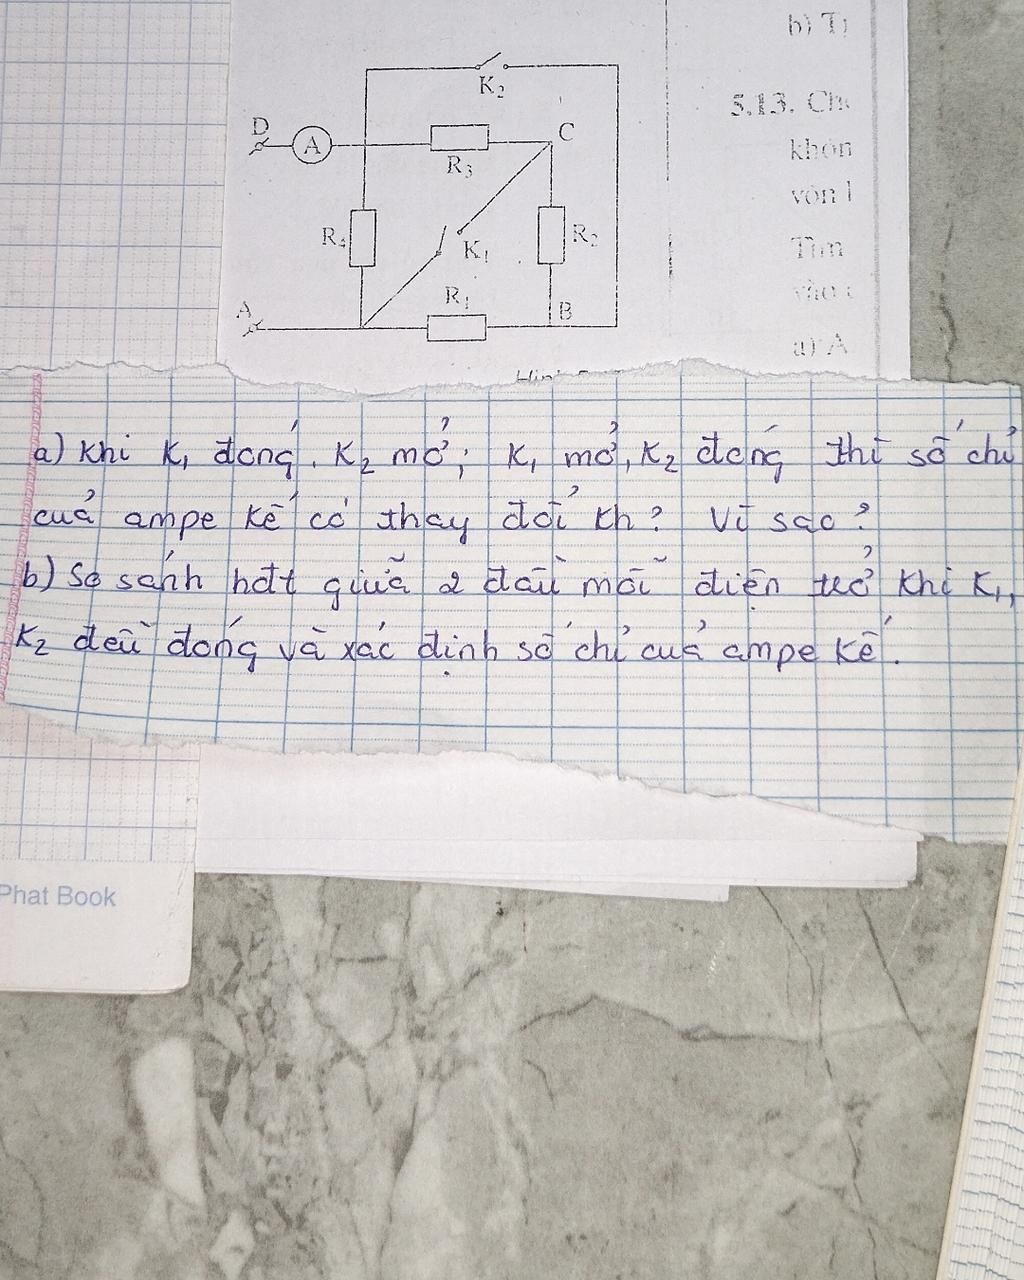 b) T
5.13. Ch
K₂
D
A
C
khôn
R₃
vôn l
R₄
K₁
R₂
Tìm
R₁
A
B
a) A
a) Khi K₁ đóng, K₂ mở; K₁ mở, K₂ đóng thì số chỉ
của ampe kế có thay đổi kh? Vì sao?
b) So sánh hđt giữa 2 đầu mỗi điện trở khi K₁,
K₂ đều đóng và xác định số chỉ của ampe kế.
Phat Book